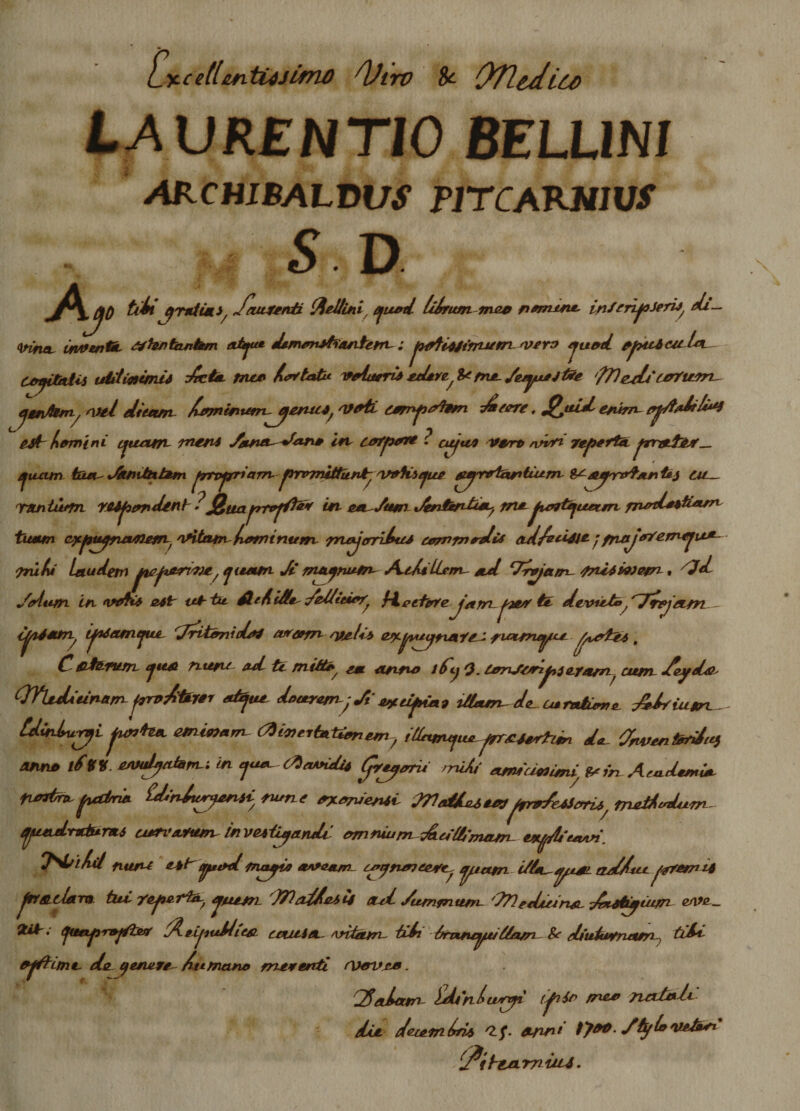 Excellentissimo Viro & Medico
LAURENTIO BELLINI
ARCHIBALDUS PITCARNIUS
S. D.
Ago tibi gratias, Laurenti Bellini, quod librum meo nomine inscripseris, di-
vina inventa ostentantem atque demonstrantem; potissimum vero quod opuscula
cogitatis utilissimis dicta meo hortatu volueris edere, & me sequestre Medicorum
gentem, vel dicam hominum genus, voti compotem facere. Quid enim optabilius
est homini quam mens sana Sano in corpore? cujus vero viri reperta praeter-
quam tua Sanitatem propriam promittunt, votisque aegrotantium & aegrotantes cu-
rantium respondent? Quapropter in ea sum sententia, me postquam modestiam
tuam expugnassem, vitam hominum majoribus commodis adfecisse; majoremque
mihi laudem peperisse, quam si magnum Achillem ad Trojam misissem. Id
solum in votis est ut tu Achille felicior, Hectore jam per te devicto, Trojam
ipsam, ipsamque Tritonidos arcem velis expugnare: namque potes.
Caeterum quae nunc ad te mitto, ea anno 1693. conscripseram, cum Leydae
Medicinam profiterer atque docerem; si excipias illam de curatione febrium
Edinburgi postea emissam Dissertationem, illamque praesertim de Inventoribus
anno 1688. evulgatam: in qua Davidis Gregorii mihi amicissimi, & in Academia
nostra patria Edinburgensi, nunc Oxoniensi Matheseos professoris, methodum
quadraturas curvarum investigandi omnium facillimam explicavi.
Nihil nunc est quod magis aveam cognoscere, quam illa quae adhuc premis
praeclara tui reperta, quem Mathesis ad summum Medicinae fastigium eve-
xit: quapropter Reipublicae causa vitam tibi tranquillam & diuturnam, tibi
optime de genere humano merenti voveo.
Dabam Edinburgi ipso meo natali
die decembris 25. anni 1700. Stylo veteri
Pitcarnius.